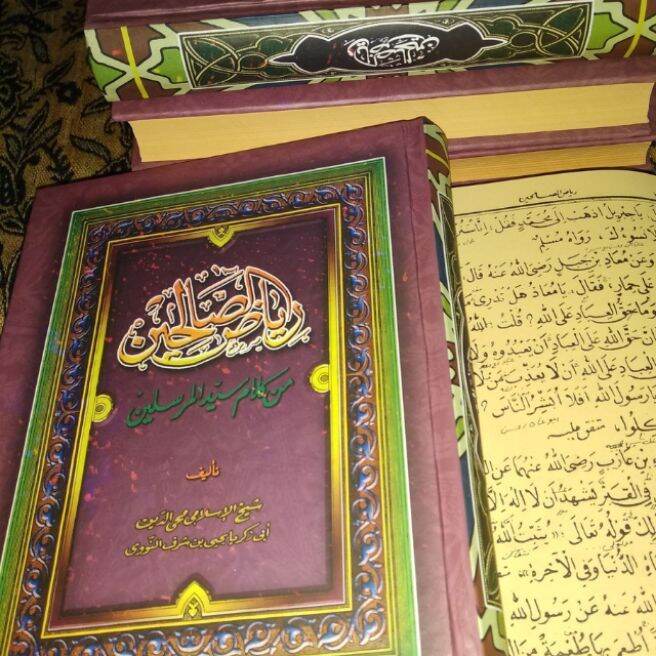 رياض الصالحين
من كلام سيد المرسلين
تأليف
شيخ الإسلام محي الدين
أبي زكريا يحيى بن شرف النووي
رياض الصالحين
رياض الصالحين
يَاجِبْرِيلُ اذْهَبْ إِلَى مُحَمَّدٍ فَقُلْ : إِنَّا سَنُ
وَلَا نَسُوءُكَ ، رَوَاهُ مُسْلِمٌ
وَعَنْ مُعَاذِ بْنِ جَبَلٍ رَضِيَ اللهُ عَنْهُ قَالَ
عَلَى حِمَارٍ، فَقَالَ، يَامُعَاذُ هَلْ تَدْرِي مَ
وَمَا حَقُّ الْعِبَادِ عَلَى اللهِ ؟ قُلْتُ : اللهُ
إِنَّ حَقَّ اللهِ عَلَى الْعِبَادِ أَنْ يَعْبُدُوهُ وَلَا
الْعِبَادِ عَلَى اللهِ أَنْ لَا يُعَذِّبَ مَنْ لَا
يَارَسُولَ اللهِ أَفَلَا أُبَشِّرُ النَّاسَ ؟
كِلُوا، متفق عليه
بْنِ عَازِبٍ رَضِيَ اللهُ عَنْهُمَا عَنِ ال
فِي الْقَبْرِ تَشَهَّدَ أَنْ لَا إِلٰهَ إِلَّا
لِكَ قَوْلُهُ تَعَالَى : يُثَبِّتُ اللهُ
الدُّنْيَا وَفِي الْآخِرَةِ
اللهُ عَنْهُ عَنْ رَسُولِ اللهِ
أُطْعِمَ بِهَا طُعْمَةً مِنَ